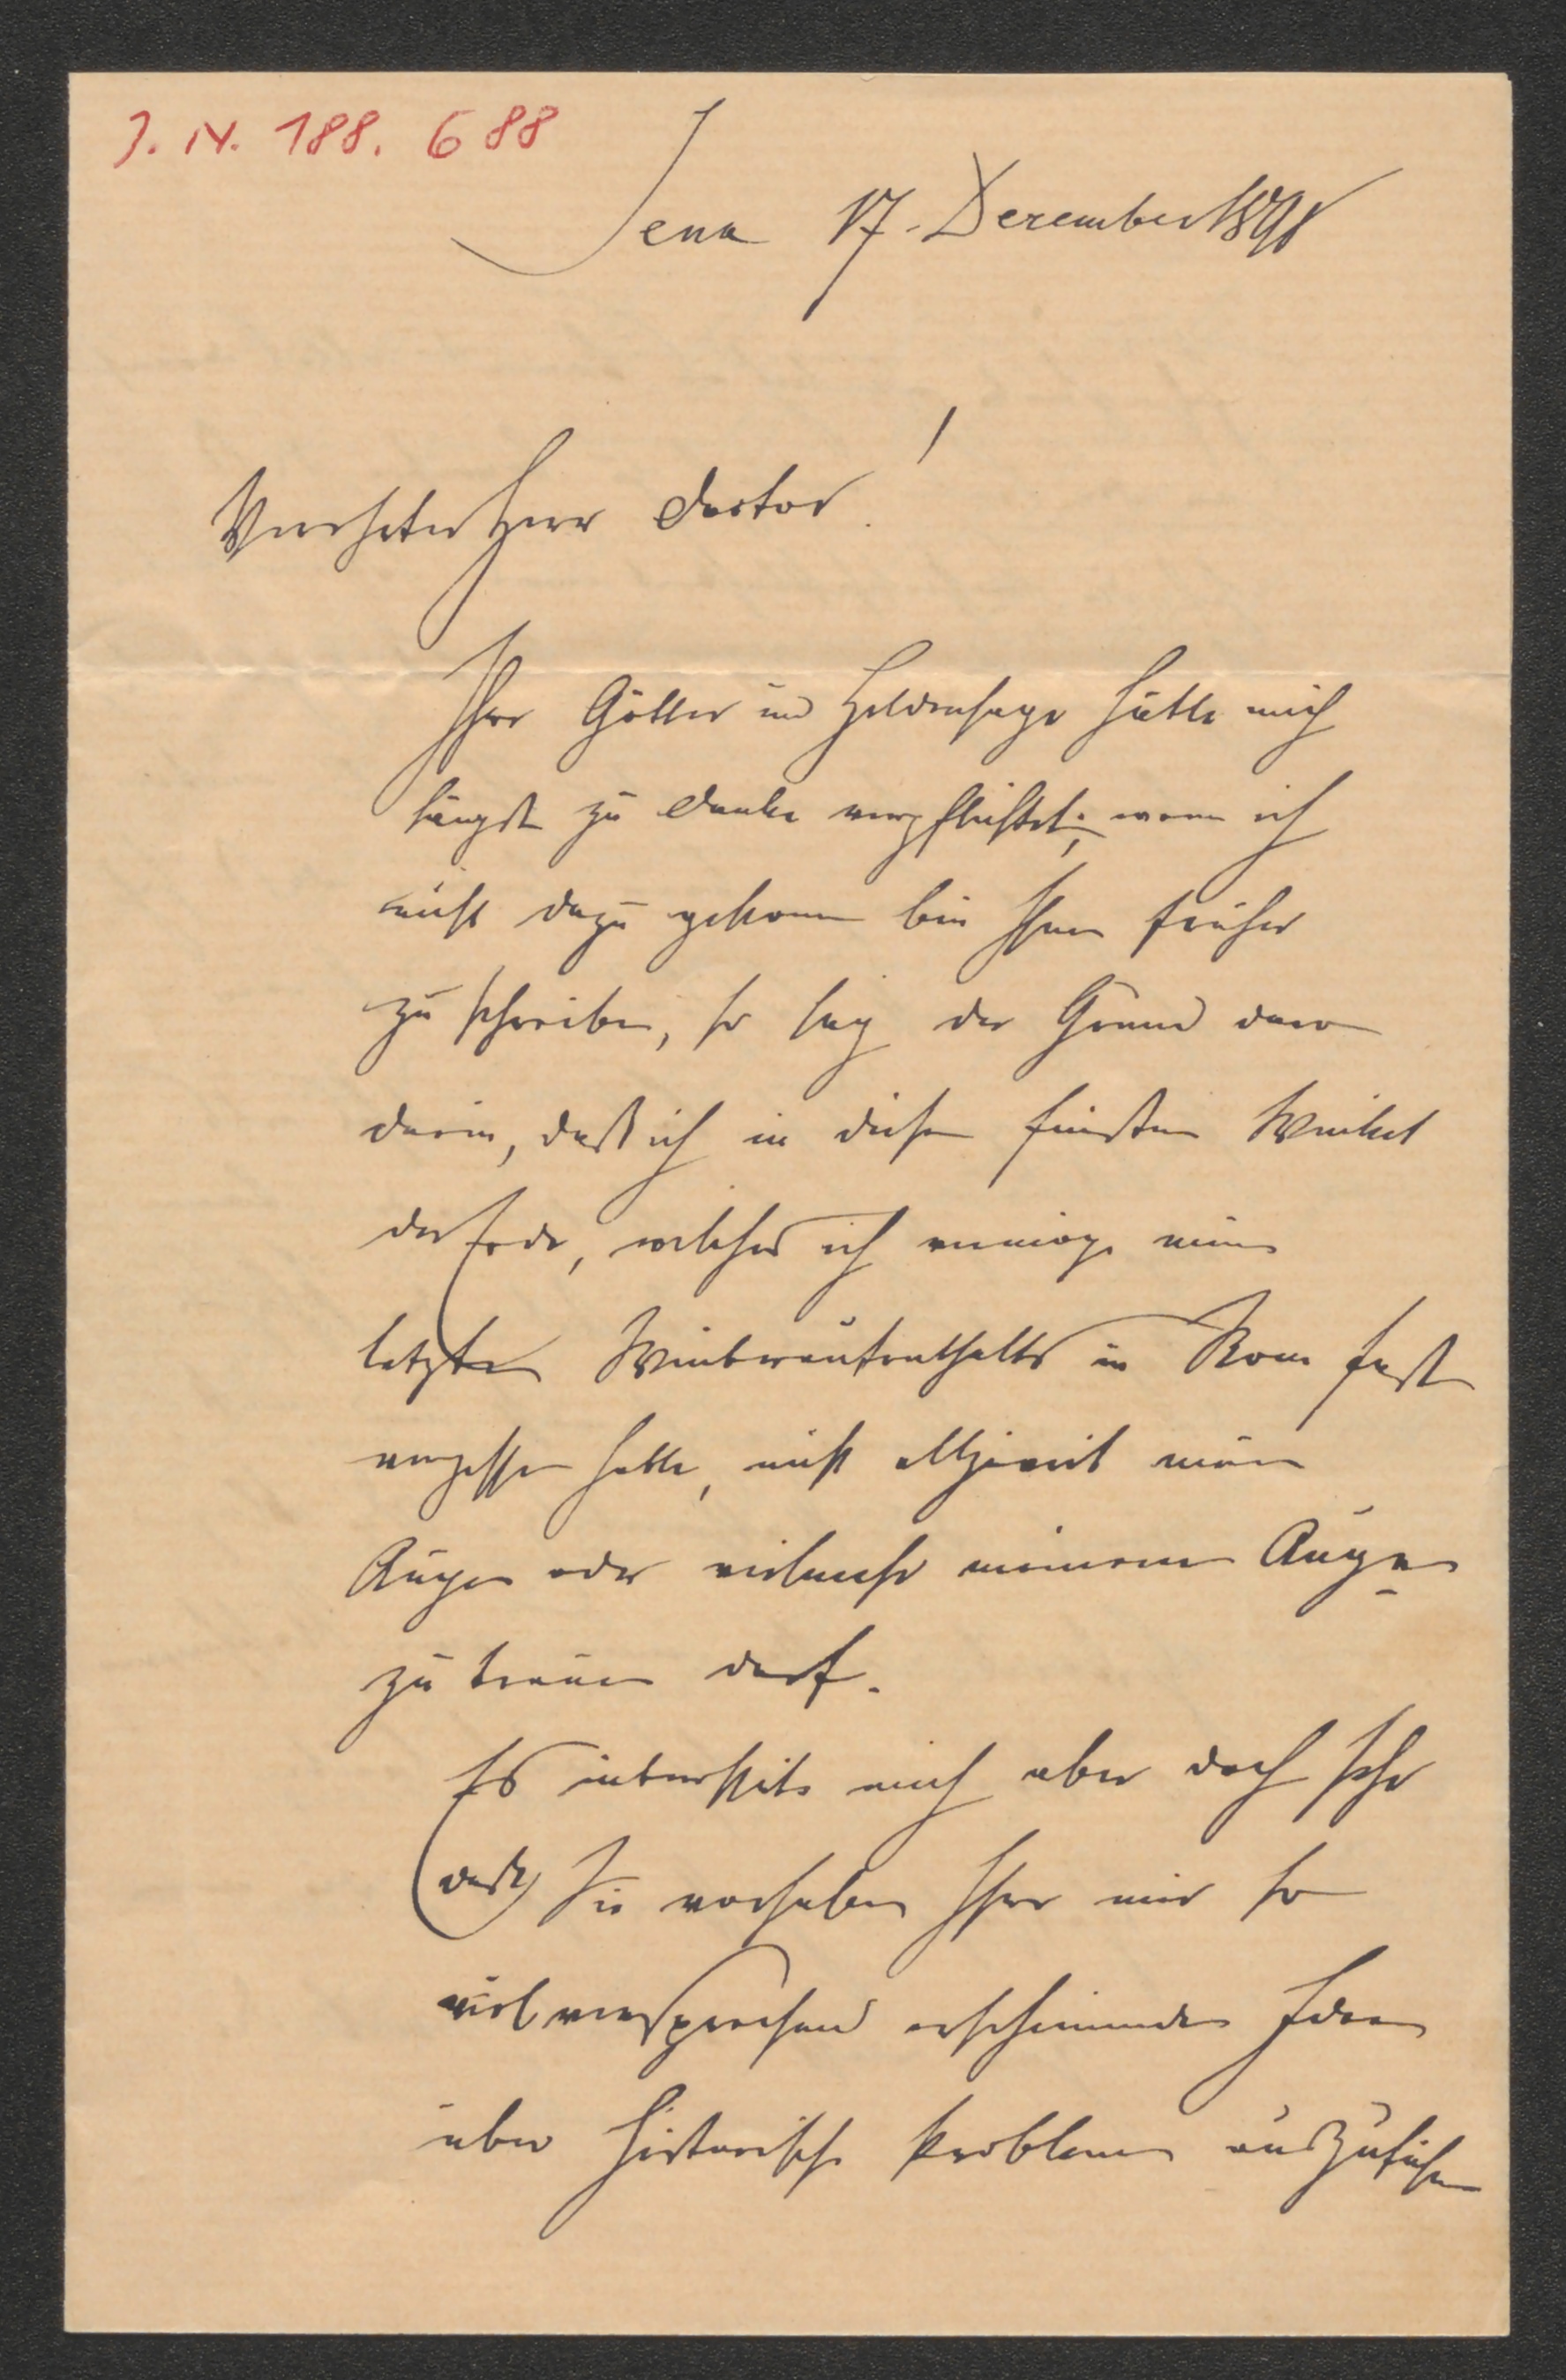 J. N. 188.688
Jena 17. December 1891
Verehrter Herr Doctor!
Ihre Götter und Heldensage hätte mich
längst zu Danke verpflichtet; wenn ich
nicht dazu gekommen bin Ihnen früher
zu schreiben, so lag der Grund davon
darin, daß ich in diesem finstern Winkel
der Erde, welches ich vermöge meines
letzten Winteraufenthalts in Rom fast
vergessen hatte, nicht allzuviel meinen
Augen oder vielmehr meinem Auge
zu trauen darf.
Es interessirte mich aber doch sehr
daß Sie vorhaben Ihre mir so
vielversprechend erscheinenden Ideen
über historische Probleme auszuführen